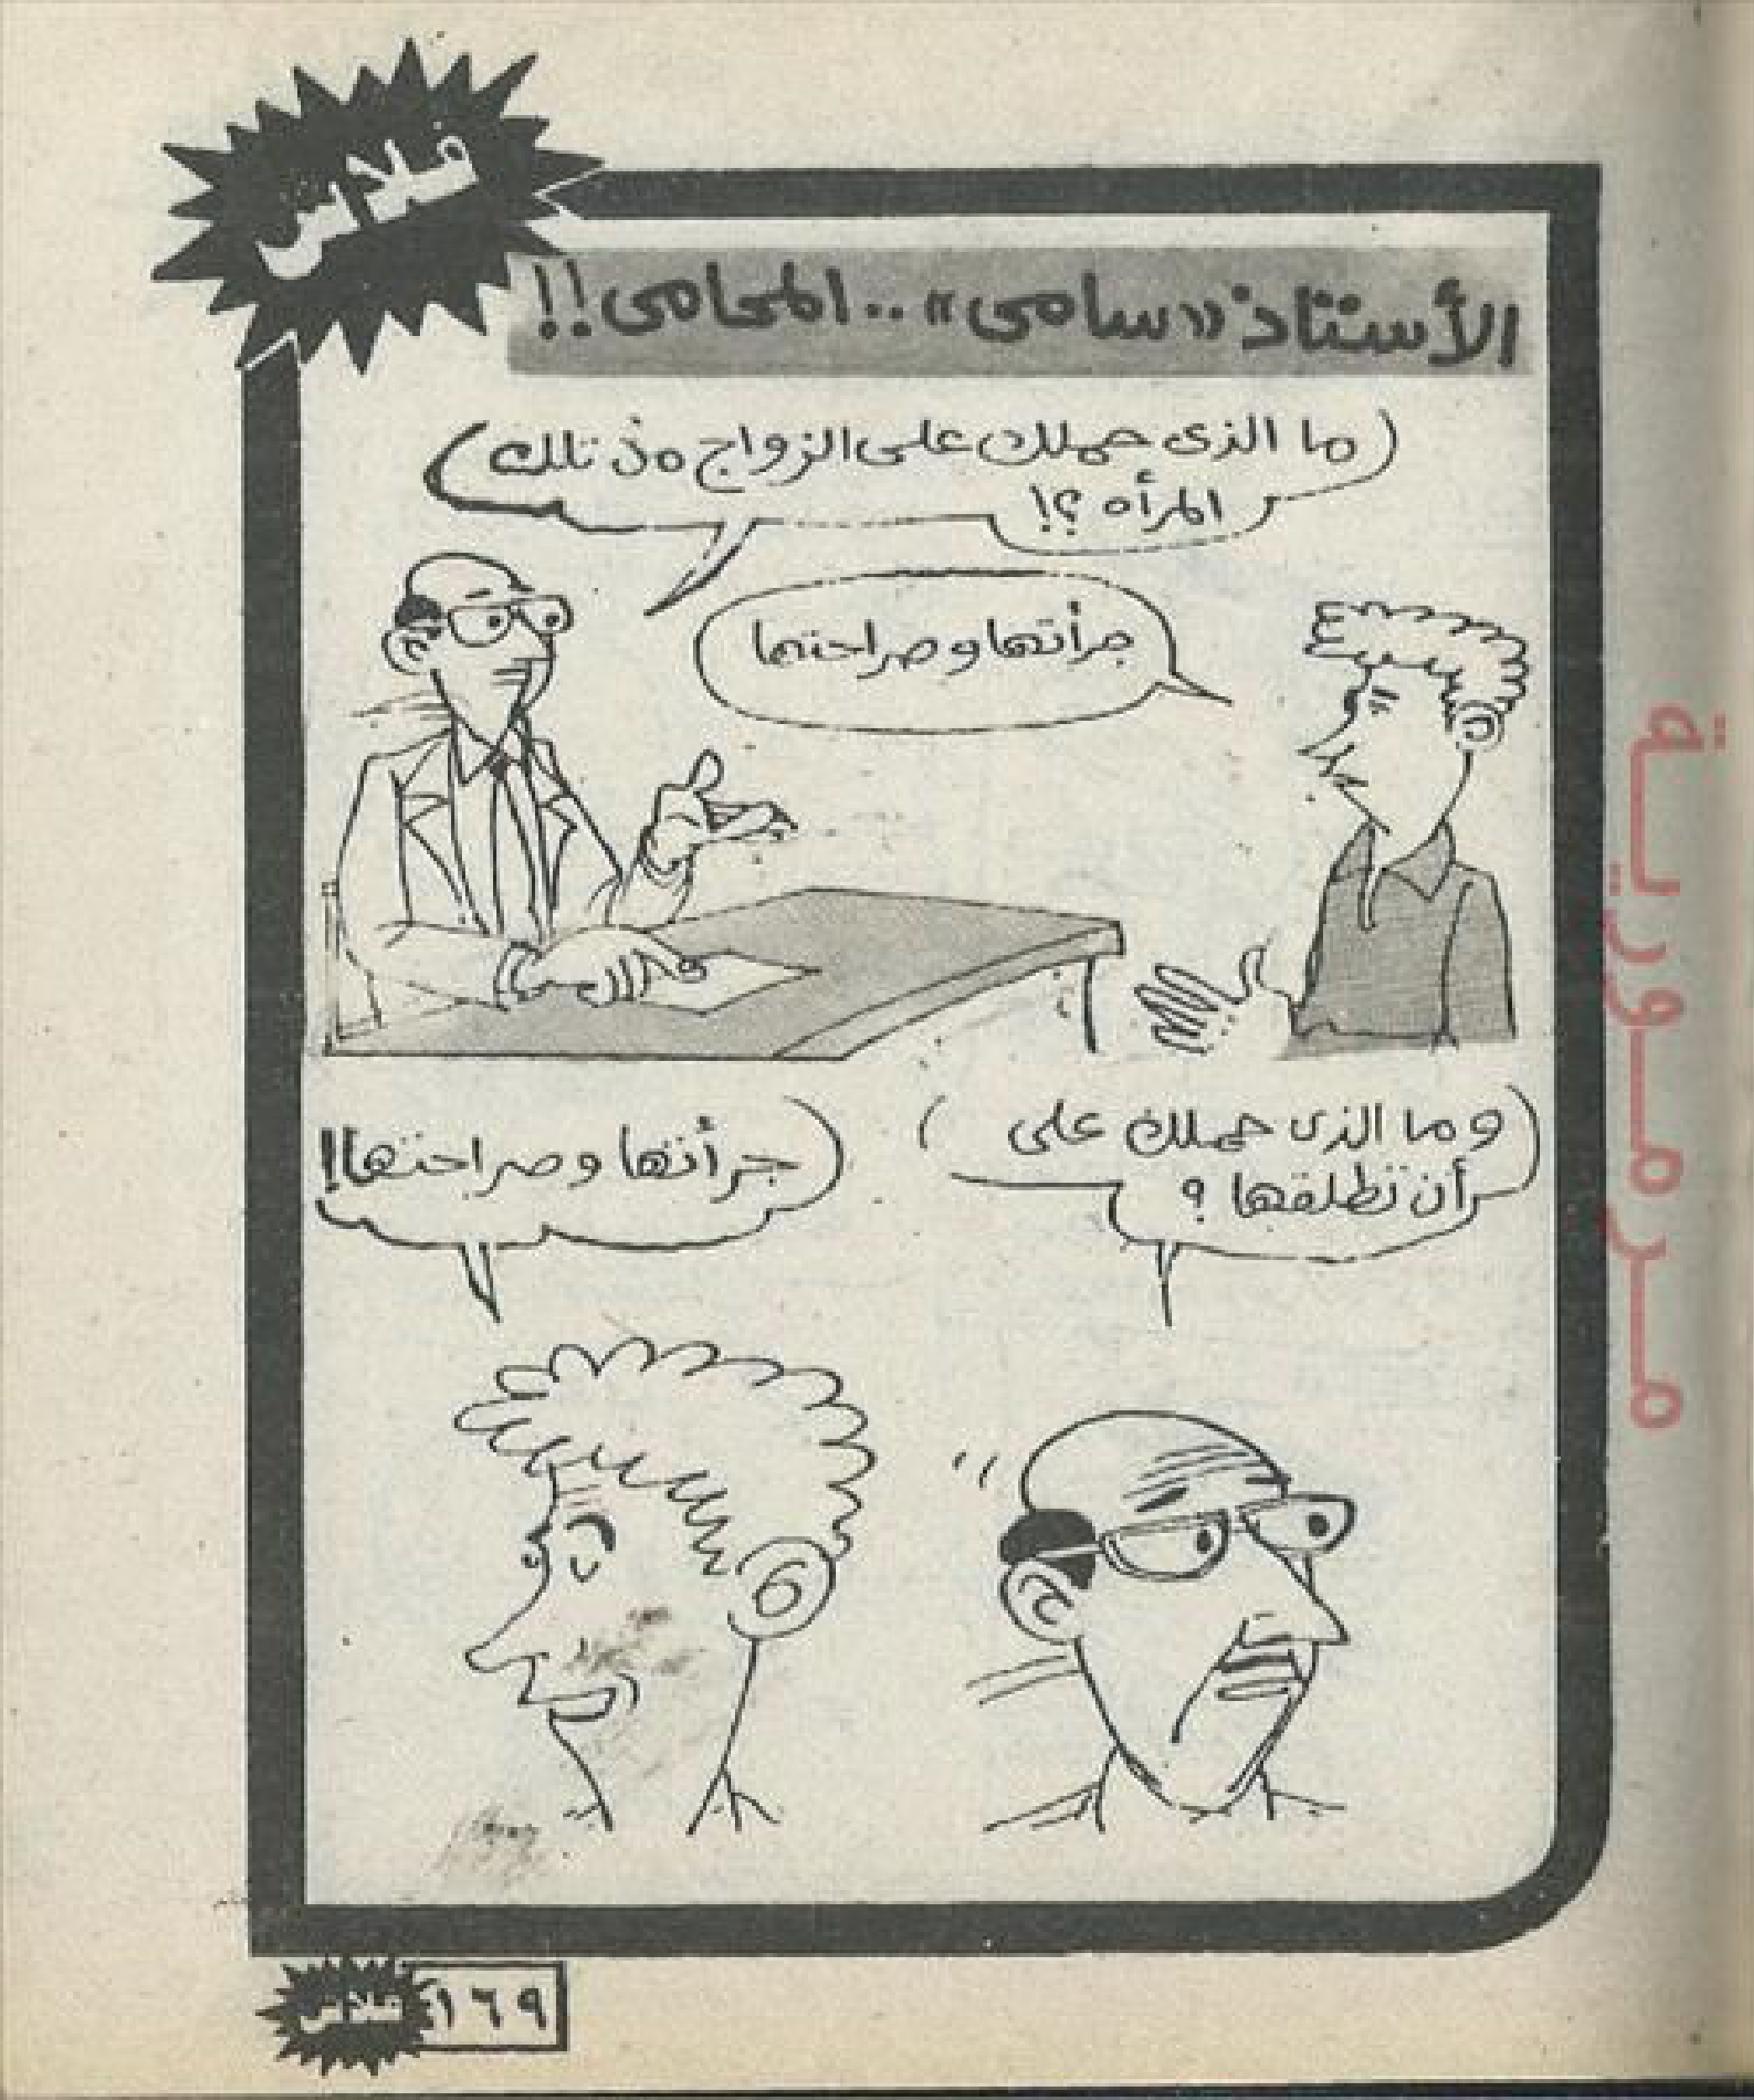 فلاش
الأستاذ «سامى».. المحامى!!
ما الذى حملك على الزواج من تلك
المرأه ؟!
جرأتها وصراحتها
وما الذى حملك على
أن تطلقها ؟
جرأتها وصراحتها!!
مرمورية
فلاش ١٦٩